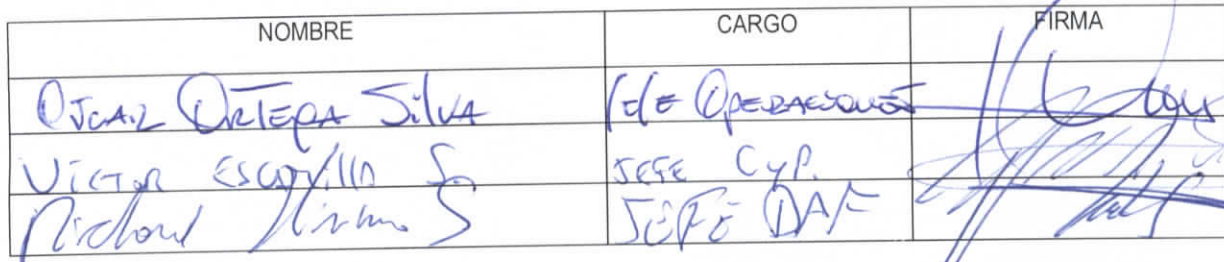 NOMBRE CARGO FIRMA
OSCAR ORTEGA SILVA JEFE OPERACIONES
VICTOR ESCOVILLA S. JEFE CyP.
Richard S JEFE DAF